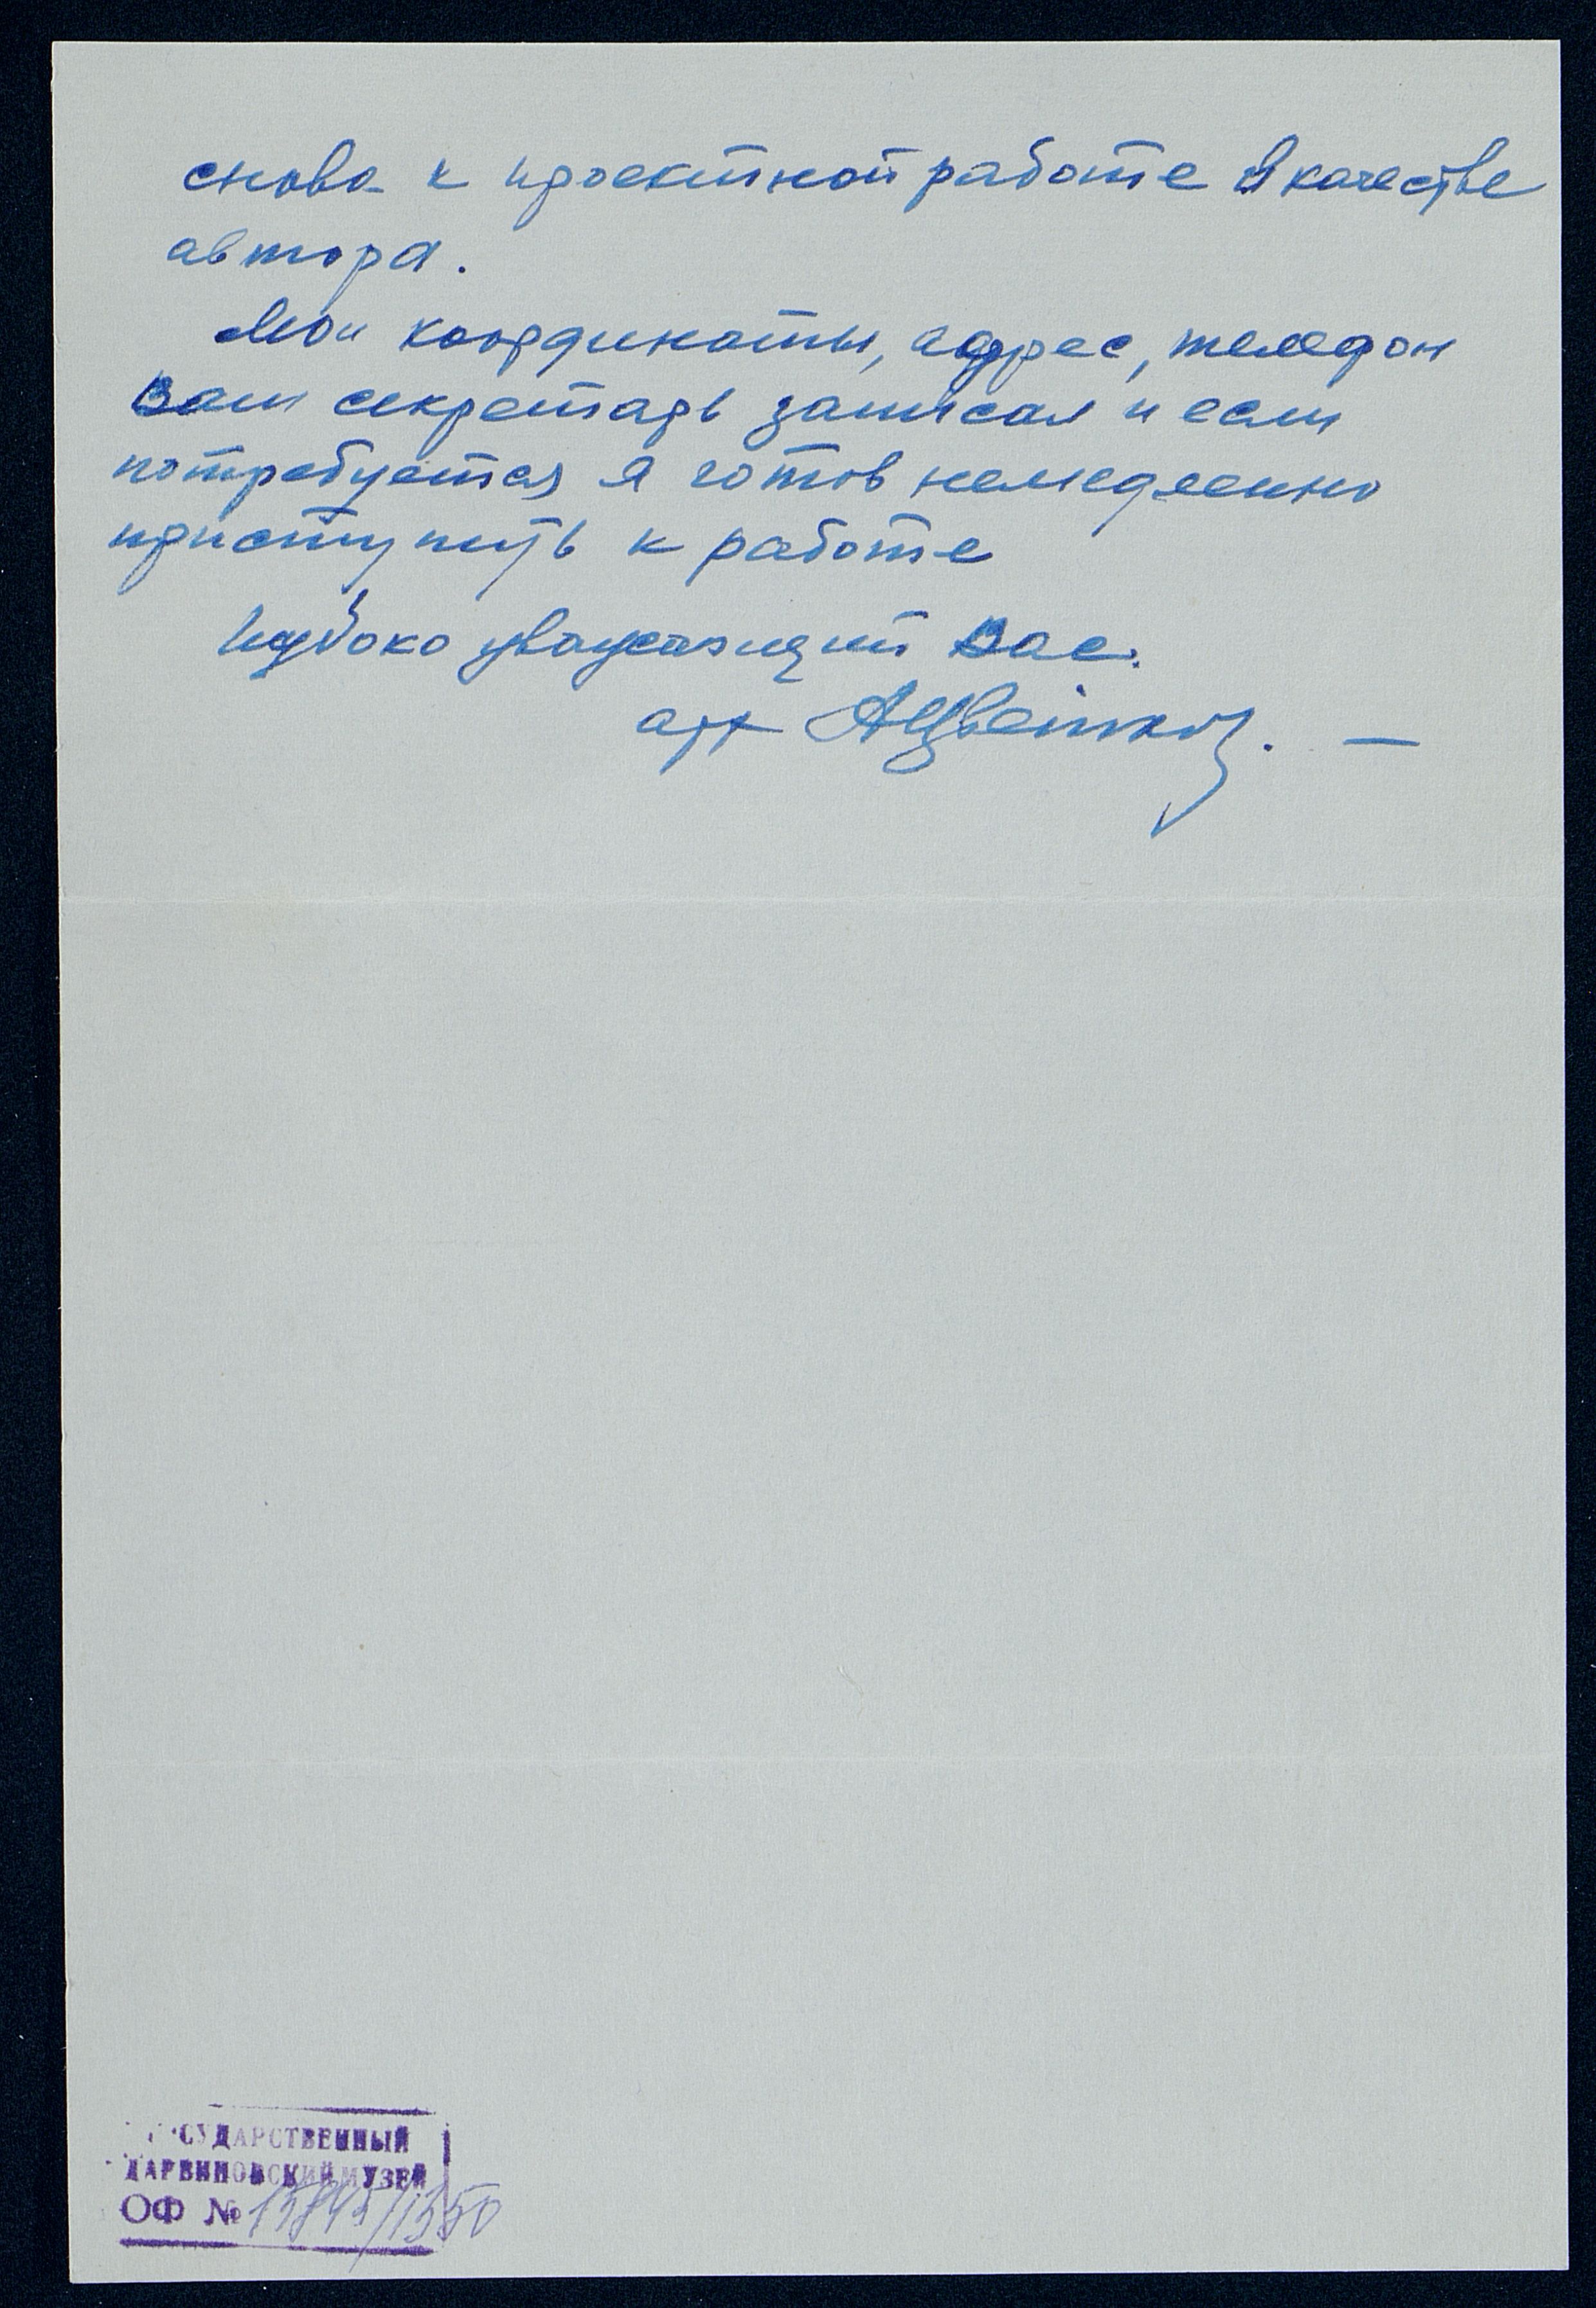 снова к проектной работе в качестве
автора.
Мои координаты, адрес, телефон
Ваш секретарь записал и если
потребуется я готов немедленно
приступить к работе
Глубоко уважающий Вас.
арх АЦветков. —
ГОСУДАРСТВЕННЫЙ
ДАРВИНОВСКИЙ МУЗЕЙ
ОФ №